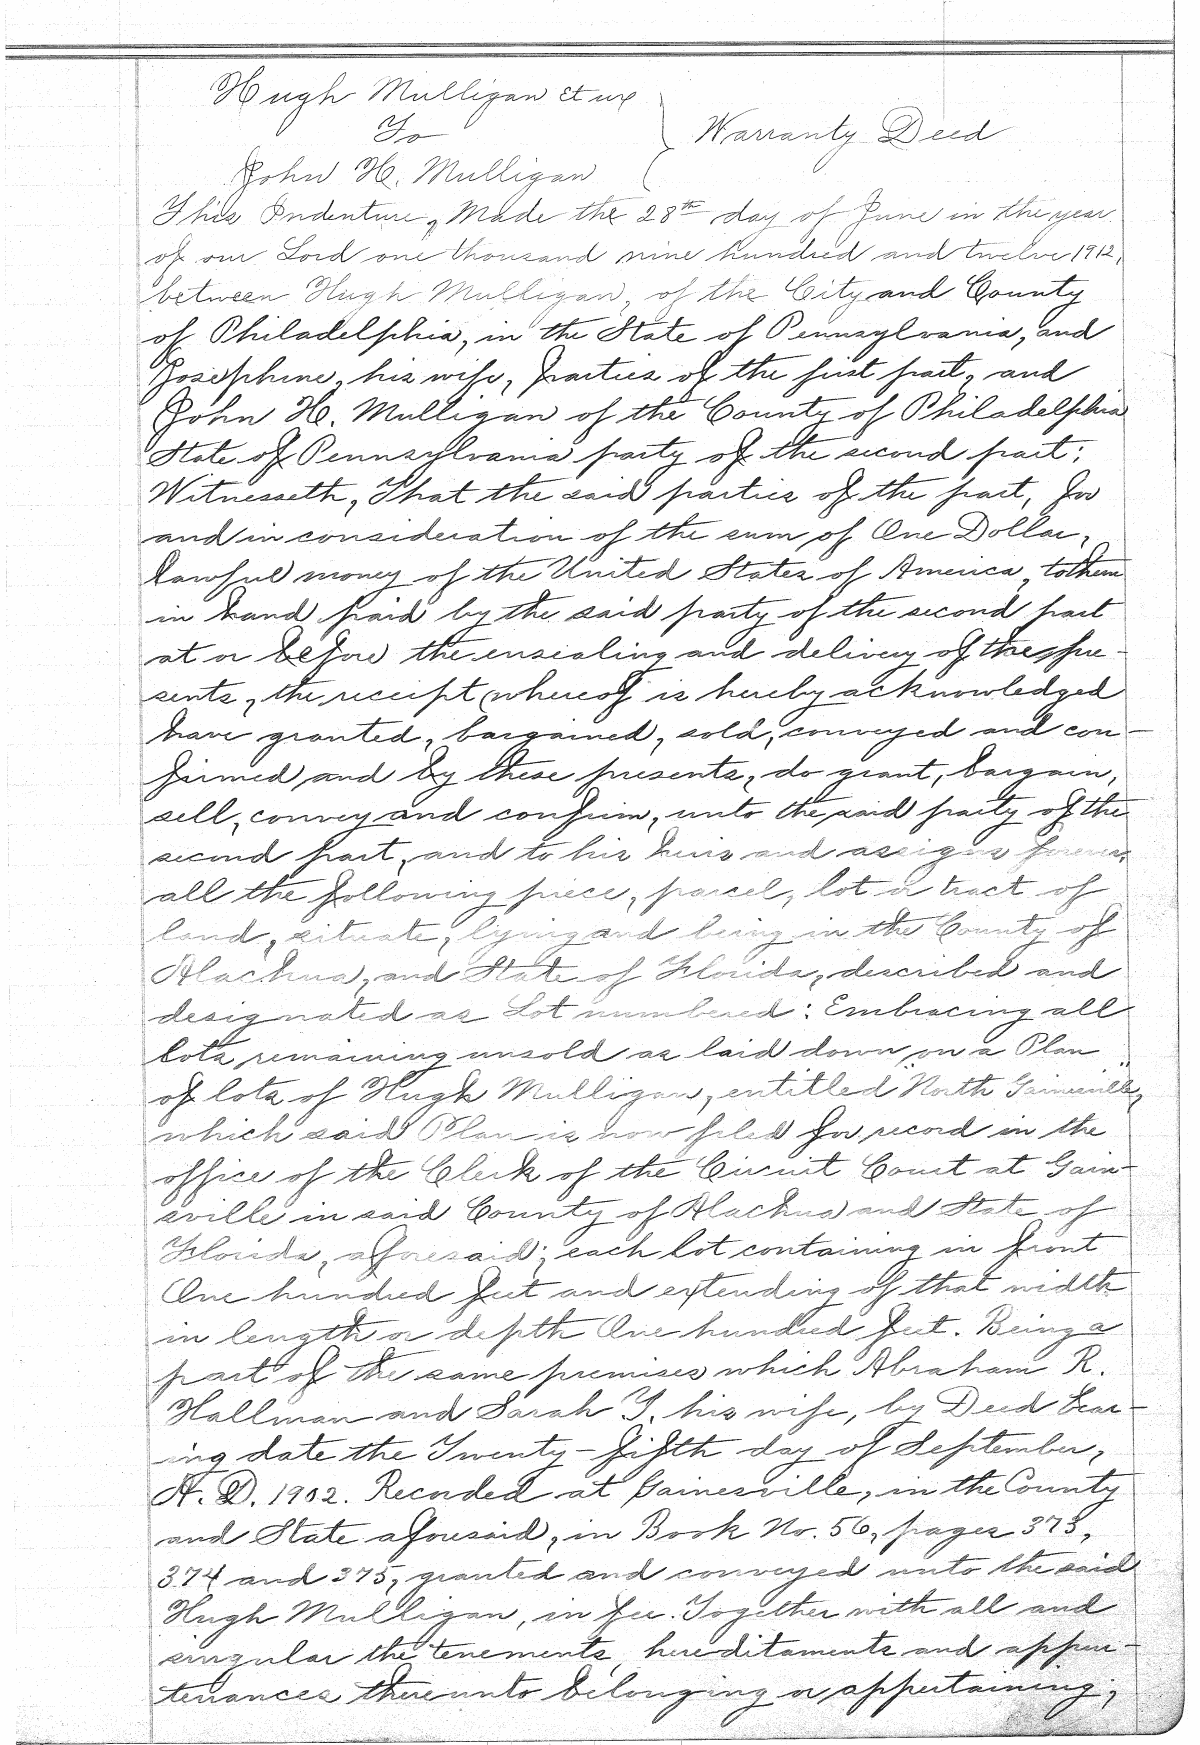 Hugh Mulligan et ux
To
Warranty Deed
John H. Mulligan
This Indenture, Made the 28th day of June in the year
of our Lord one thousand nine hundred and twelve 1912,
between Hugh Mulligan, of the City and County
of Philadelphia, in the State of Pennsylvania, and
Josephine, his wife, parties of the first part, and
John H. Mulligan of the County of Philadelphia
State of Pennsylvania party of the second part;
Witnesseth, That the said parties of the part, for
and in consideration of the sum of One Dollar,
lawful money of the United States of America, to them
in hand paid by the said party of the second part
at or before the ensealing and delivery of these pre-
sents, the receipt whereof is hereby acknowledged
have granted, bargained, sold, conveyed and con-
firmed, and by these presents, do grant, bargain,
sell, convey and confirm, unto the said party of the
second part, and to his heirs and assigns forever,
all the following piece, parcel, lot or tract of
land, situate, lying and being in the County of
Alachua, and State of Florida, described and
designated as Lot numbered: Embracing all
lots remaining unsold as laid down on a Plan
of lots of Hugh Mulligan, entitled "North Gainesville,"
which said Plan is now filed for record in the
office of the Clerk of the Circuit Court at Gain-
sville in said County of Alachua and State of
Florida, aforesaid; each lot containing in front
One hundred feet and extending of that width
in length or depth One hundred feet. Being a
part of the same premises which Abraham R.
Hallman and Sarah T. his wife, by Deed bear-
ing date the Twenty-fifth day of September,
A. D. 1902. Recorded at Gainesville, in the County
and State aforesaid, in Book No. 56, pages 373,
374 and 375, granted and conveyed unto the said
Hugh Mulligan, in fee. Together with all and
singular the tenements, hereditaments and appur-
tenances thereunto belonging or appertaining;